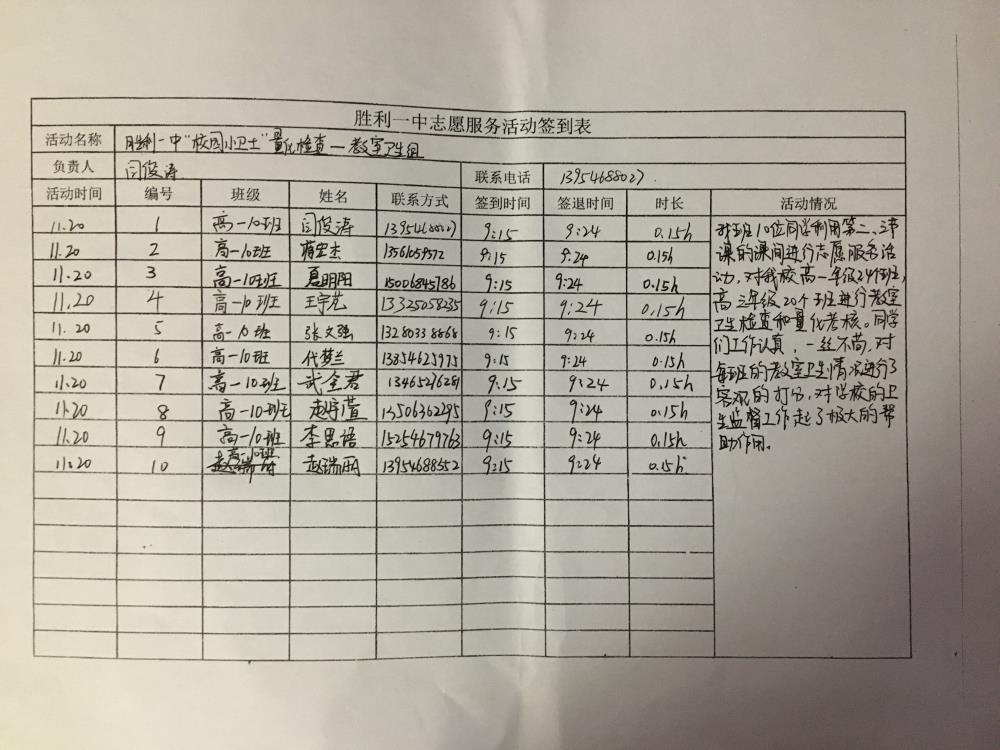 胜利一中志愿服务活动签到表
活动名称 胜利一中"校园小卫士"量化检查—教室卫生组
负责人 闫俊涛 联系电话 13954688027.
活动时间 编号 班级 姓名 联系方式 签到时间 签退时间 时长 活动情况
11.20 1 高一10班 闫俊涛 13954688027 9:15 9:24 0.15h
11.20 2 高一10班 杰 13561059572 9:15 9:24 0.15h
11.20 3 高一10班 夏明阳 15006845786 9:15 9:24 0.15h
11.20 4 高一10班 王宇艺 13325058235 9:15 9:24 0.15h
11.20 5 高一10班 张文强 13280338868 9:15 9:24 0.15h
11.20 6 高一10班 代梦兰 13354625975 9:15 9:24 0.15h
11.20 7 高一10班 武全君 13465276281 9:15 9:24 0.15h
11.20 8 高一10班 赵 萱 13506362295 9:15 9:24 0.15h
11.20 9 高一10班 李思语 15254679763 9:15 9:24 0.15h
11.20 10 高一10班 赵瑞丽 13954688552 9:15 9:24 0.15h
我班10位同学利用第二、三节
课的课间进行志愿服务活
动,对我校高一年级24个班,
高三年级20个班进行教室
卫生检查和量化考核。同学
们工作认真,一丝不苟,对
每班的教室卫生情况进行了
客观的打分,对学校的卫
生监督工作起了极大的帮
助作用。